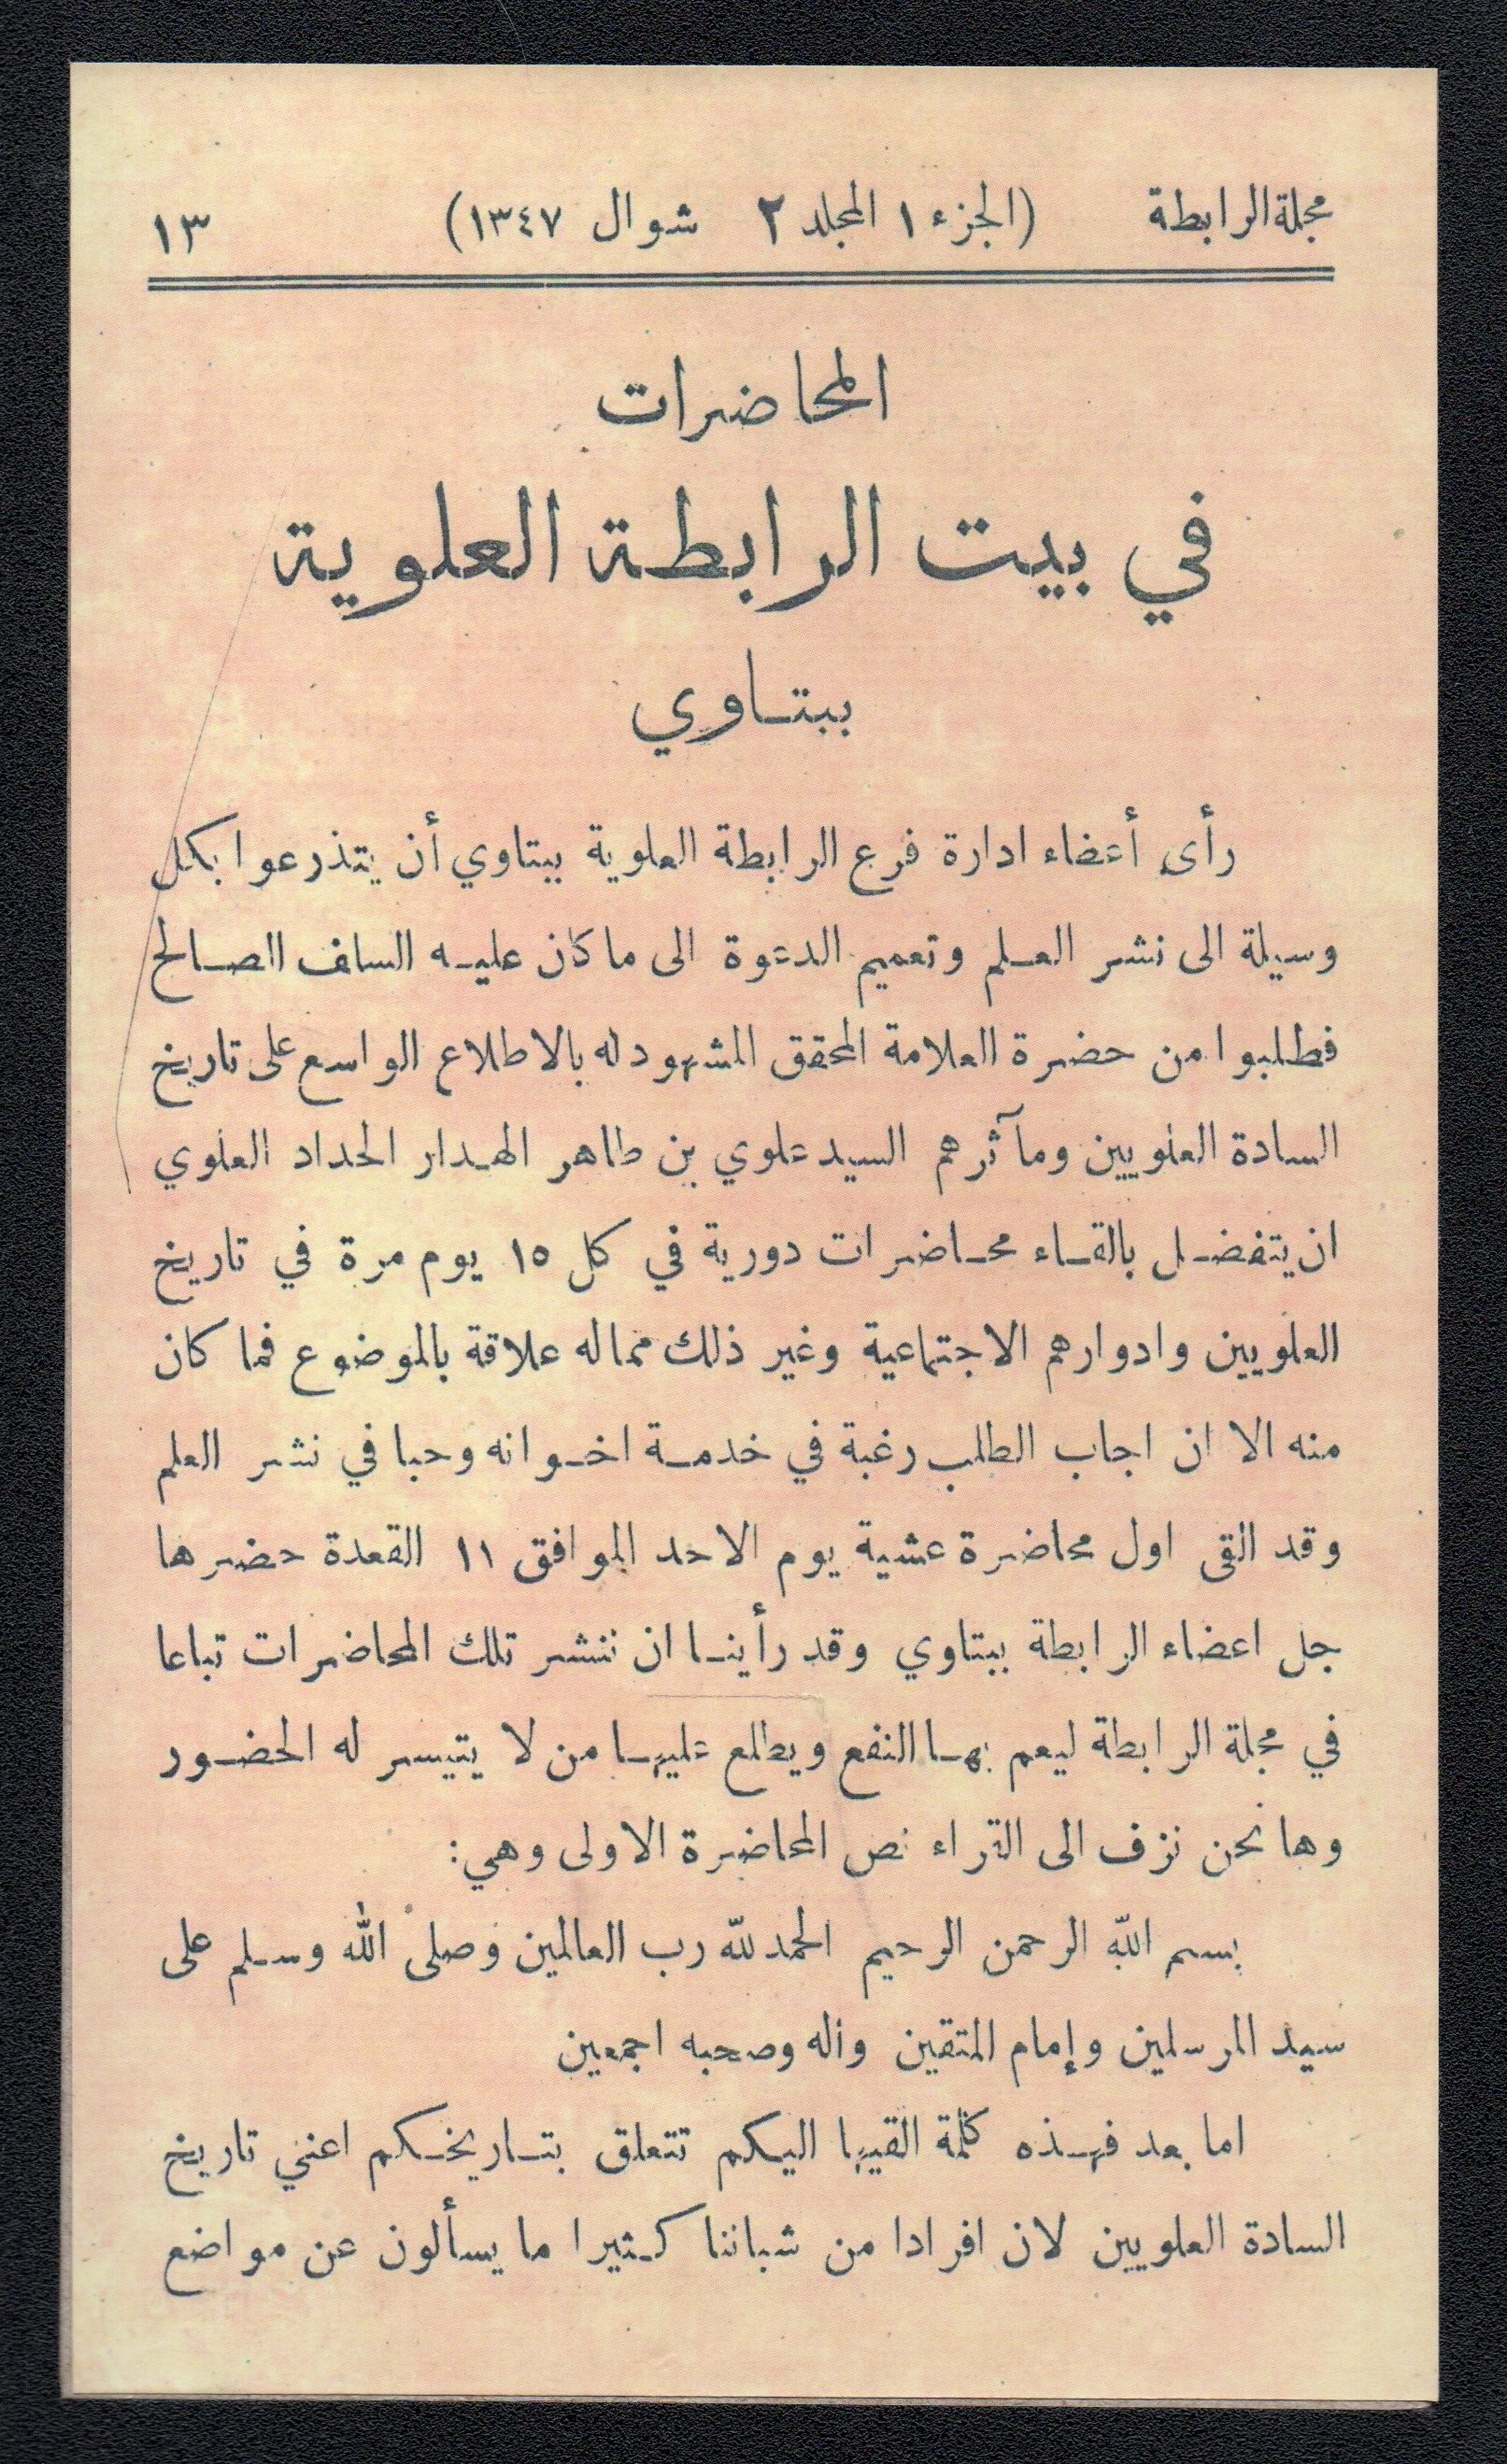 مجلة الرابطة (الجزء ١ المجلد ٢ شوال ١٣٤٧) ١٣
المحاضرات
في بيت الرابطة العلوية
ببتاوي
رأى أعضاء ادارة فرع الرابطة العلوية ببتاوي أن يتذرعوا بكل
وسيلة الى نشر العلم وتعميم الدعوة الى ما كان عليه السلف الصالح
فطلبوا من حضرة العلامة المحقق المشهود له بالاطلاع الواسع على تاريخ
السادة العلويين ومآثرهم السيد علوي بن طاهر الهدار الحداد العلوي
ان يتفضل بالقاء محاضرات دورية في كل ١٥ يوم مرة في تاريخ
العلويين وادوارهم الاجتماعية وغير ذلك مما له علاقة بالموضوع فما كان
منه الا ان اجاب الطلب رغبة في خدمة اخوانه وحبا في نشر العلم
وقد القى اول محاضرة عشية يوم الاحد الموافق ١١ القعدة حضرها
جل اعضاء الرابطة ببتاوي وقد رأينا ان ننشر تلك المحاضرات تباعا
في مجلة الرابطة ليعم بها النفع ويطلع عليها من لا يتيسر له الحضور
وها نحن نزف الى القراء نص المحاضرة الاولى وهي:
بسم الله الرحمن الرحيم الحمد لله رب العالمين وصلى الله وسلم على
سيد المرسلين وإمام المتقين واله وصحبه اجمعين
اما بعد فهذه كلمة القيها اليكم تتعلق بتاريخكم اعني تاريخ
السادة العلويين لان افرادا من شباننا كثيرا ما يسألون عن مواضع